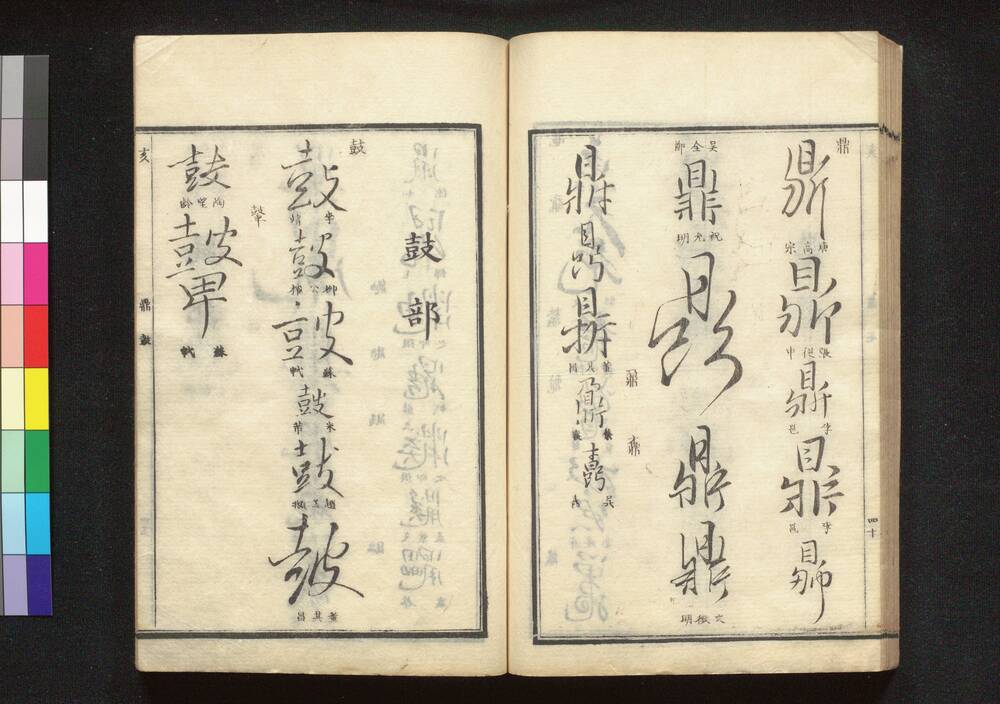 鼎
鼎
唐高宗
鼎
張從申
鼎
李邕
鼎
李邕
鼎
鼎
祝允明
鼎
鼎
鼎
文徵明
鼎
鼎
鼎
董其昌
四十
鼓部
鼓
鼓
鼓
柳公權
鼓
蘇軾
鼓
米芾
鼓
趙孟頫
鼓
董其昌
鼙
鼓
鼙
蘇軾
亥
鼎
鼓